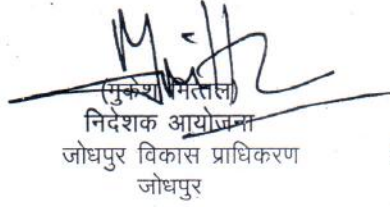 (मुकेश मित्तल)
निदेशक आयोजना
जोधपुर विकास प्राधिकरण
जोधपुर